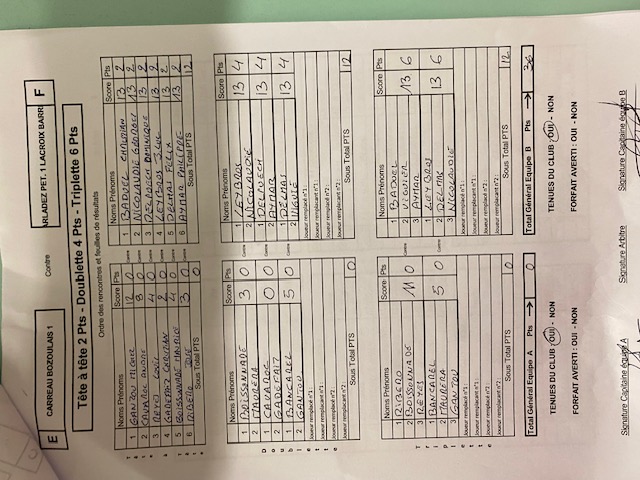 E CARREAU BOZOULAIS 1 Contre ARLADEZ PET. 1 LACROIX BARR F
Tête à tête 2 Pts - Doublette 4 Pts - Triplette 6 Pts
Ordre des rencontres et feuilles de résultats
Noms Prénoms Score Pts Noms Prénoms Score Pts
1 12 0 Contre 1 BADUEL 13 2
2 0 Contre 2 NICOLAUDIE GEORGES 13 2
3 REY 4 0 Contre 3 DELPUECH DOMINIQUE 13 2
4 0 Contre 4 LEYBROS 13 2
5 BOISSONNADE MAURICE 4 0 Contre 5 DELMAS 13 2
6 RIBERO 3 0 Contre 6 AYMAR PHILIPPE 13 2
Sous Total PTS 0 Sous Total PTS 12
Noms Prénoms Score Pts Noms Prénoms Score Pts
1 BOISSONNADE 3 0 Contre 1 LEYBROS 13 4
2 MAURERA 2 NICOLAUDIE
1 0 0 Contre 1 DELPUECH 13 4
2 2 AYMAR
1 BANCAREL 5 0 Contre 1 DELMAS 13 4
2 GANTOU 2 VIGUIE
Joueur remplacant n°1 : Joueur remplacant n°1 :
Joueur remplacant n°2 : Joueur remplacant n°2 :
Sous Total PTS 0 Sous Total PTS 12
Noms Prénoms Score Pts Noms Prénoms Score Pts
1 RIBERO 1 BADUEL
2 BOISSONNADE 11 0 Contre 2 13 6
3 REY 3 AYMAR
1 BANCAREL 1 LEYBROS
2 MAURERA 5 0 Contre 2 DELMAS 13 6
3 GANTOU 3 NICOLAUDIE
Joueur remplacant n°1 : Joueur remplacant n°1 :
Joueur remplacant n°2 : Joueur remplacant n°2 :
Sous Total PTS 0 Sous Total PTS 12
Total Général Equipe A Pts 0 Total Général Equipe B Pts 36
TENUES DU CLUB : OUI - NON TENUES DU CLUB : OUI - NON
FORFAIT AVERTI : OUI - NON FORFAIT AVERTI : OUI - NON
Signature Capitaine équipe A Signature Arbitre Signature Capitaine équipe B